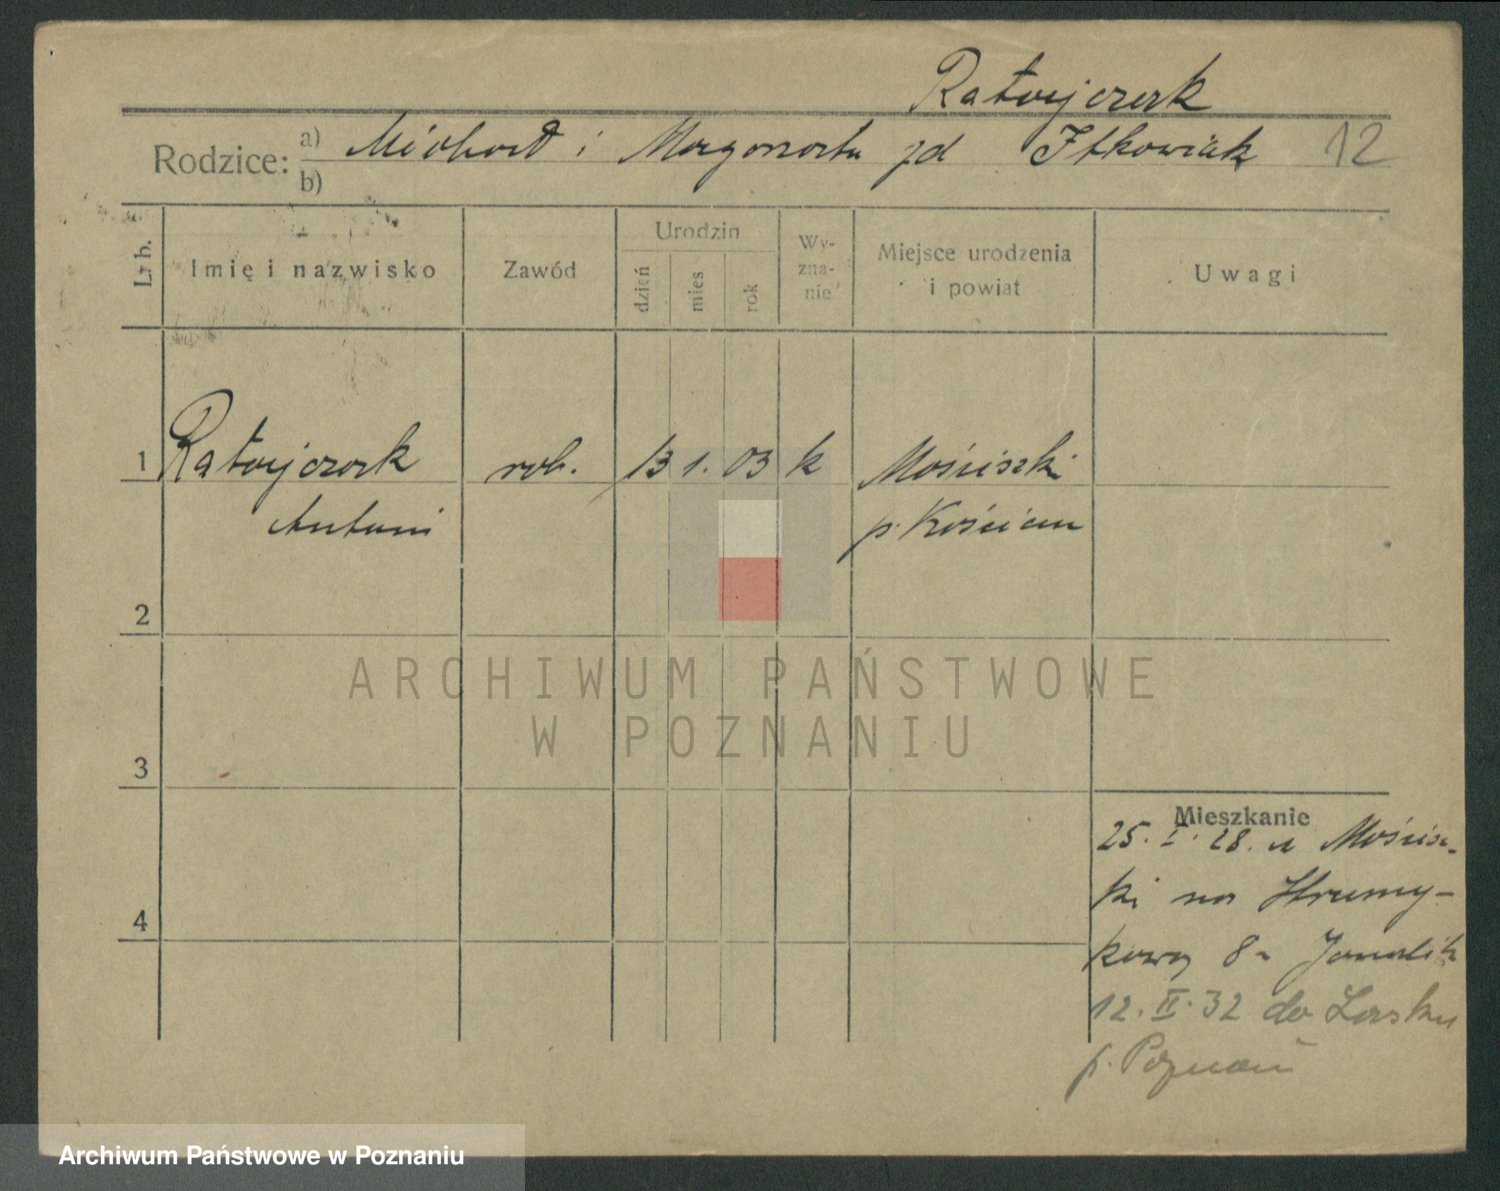 Ratajczak
Rodzice: a) Michał i Margorata zd Itkowiak 12
b)
L. b.
Imię i nazwisko
Zawód
Urodzin
dzień
mies
rok
Wy-
zna-
nie
Miejsce urodzenia
i powiat
Uwagi
1 Ratajczak rob. 13 1. 03 k Mościszki
Antoni p. Kościan
2
3
4
Mieszkanie
25. I. 28. z Mościsz-
ki na Strumy-
kową 8
12. II. 32 do Lasku
p. Poznań
ARCHIWUM PAŃSTWOWE
W POZNANIU
Archiwum Państwowe w Poznaniu